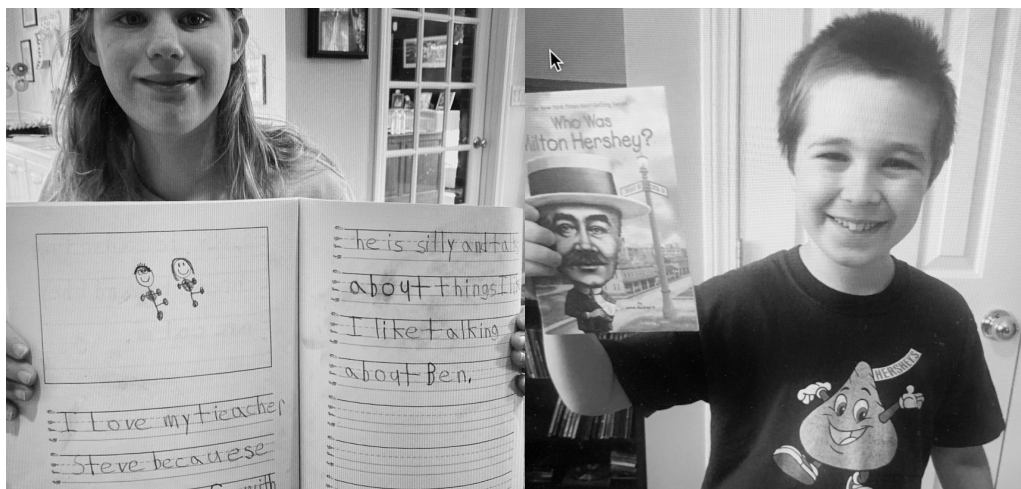 I Love my tieacher
Steve becauese
he is silly and tal
about things I li
I like talking
about Ben.
Who Was
Milton Hershey?
HERSHEY'S